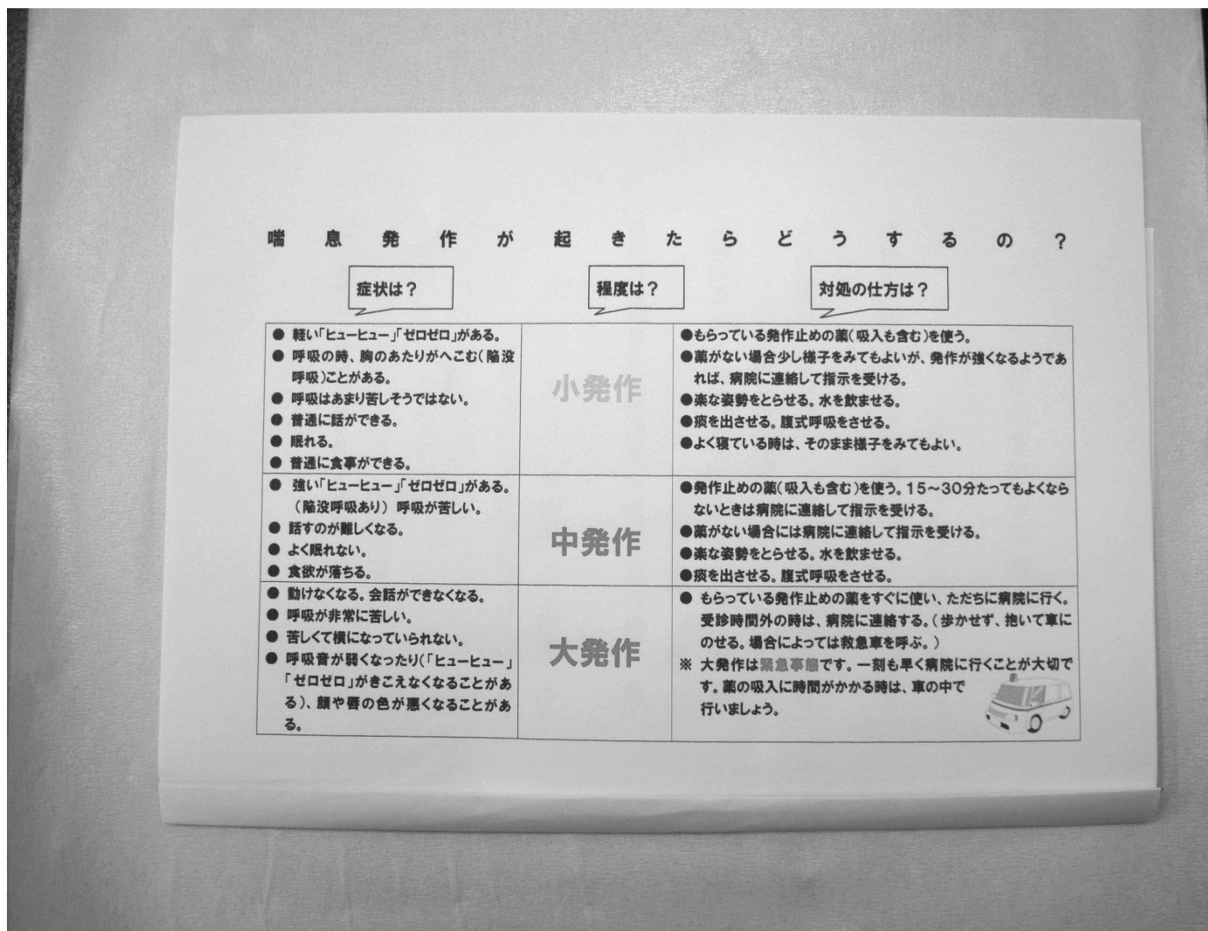 喘息発作が起きたらどうするの?
症状は?
程度は?
対処の仕方は?
● 軽い「ヒューヒュー」「ゼロゼロ」がある。
● 呼吸の時、胸のあたりがへこむ(陥没
呼吸)ことがある。
● 呼吸はあまり苦しそうではない。
● 普通に話ができる。
● 眠れる。
● 普通に食事ができる。
小発作
●もらっている発作止めの薬(吸入も含む)を使う。
●薬がない場合少し様子をみてもよいが、発作が強くなるようであ
れば、病院に連絡して指示を受ける。
●楽な姿勢をとらせる。水を飲ませる。
●痰を出させる。腹式呼吸をさせる。
●よく寝ている時は、そのまま様子をみてもよい。
● 強い「ヒューヒュー」「ゼロゼロ」がある。
(陥没呼吸あり) 呼吸が苦しい。
● 話すのが難しくなる。
● よく眠れない。
● 食欲が落ちる。
中発作
●発作止めの薬(吸入も含む)を使う。15~30分たってもよくなら
ないときは病院に連絡して指示を受ける。
●薬がない場合には病院に連絡して指示を受ける。
●楽な姿勢をとらせる。水を飲ませる。
●痰を出させる。腹式呼吸をさせる。
● 動けなくなる。会話ができなくなる。
● 呼吸が非常に苦しい。
● 苦しくて横になっていられない。
● 呼吸音が弱くなったり(「ヒューヒュー」
「ゼロゼロ」がきこえなくなることがあ
る)、顔や唇の色が悪くなることがあ
る。
大発作
● もらっている発作止めの薬をすぐに使い、ただちに病院に行く。
受診時間外の時は、病院に連絡する。(歩かせず、抱いて車に
のせる。場合によっては救急車を呼ぶ。)
※ 大発作は緊急事態です。一刻も早く病院に行くことが大切で
す。薬の吸入に時間がかかる時は、車の中で
行いましょう。